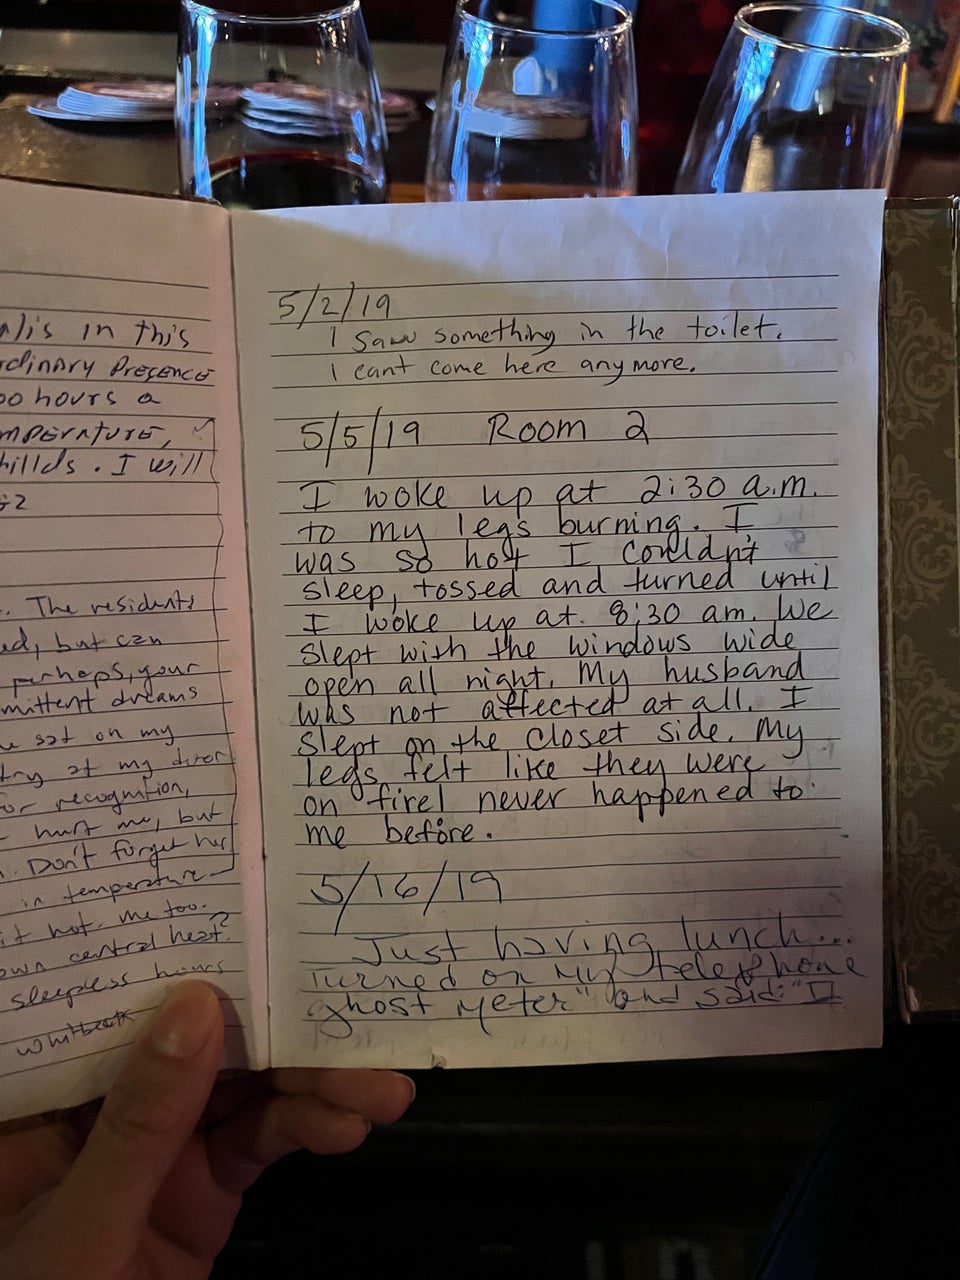 in this
Presence
hours a
. I will
. The residents
, but can
perhaps, your
dreams
sat on my
at my door
for recognition,
hurt me, but
. Don't forget her
in temperature
it hot. me too.
own central heat?
sleepless hours
5/2/19
I saw something in the toilet.
i cant come here anymore.
5/5/19 Room 2
I woke up at 2:30 a.m.
to my legs burning. I
was so hot I couldn't
sleep, tossed and turned until
I woke up at 8:30 am. We
slept with the windows wide
open all night. My husband
was not affected at all. I
slept on the closet side. My
legs felt like they were
on fire! never happened to
me before.
5/16/19
Just having lunch...
Turned on my "telephone
ghost meter" and said: "I